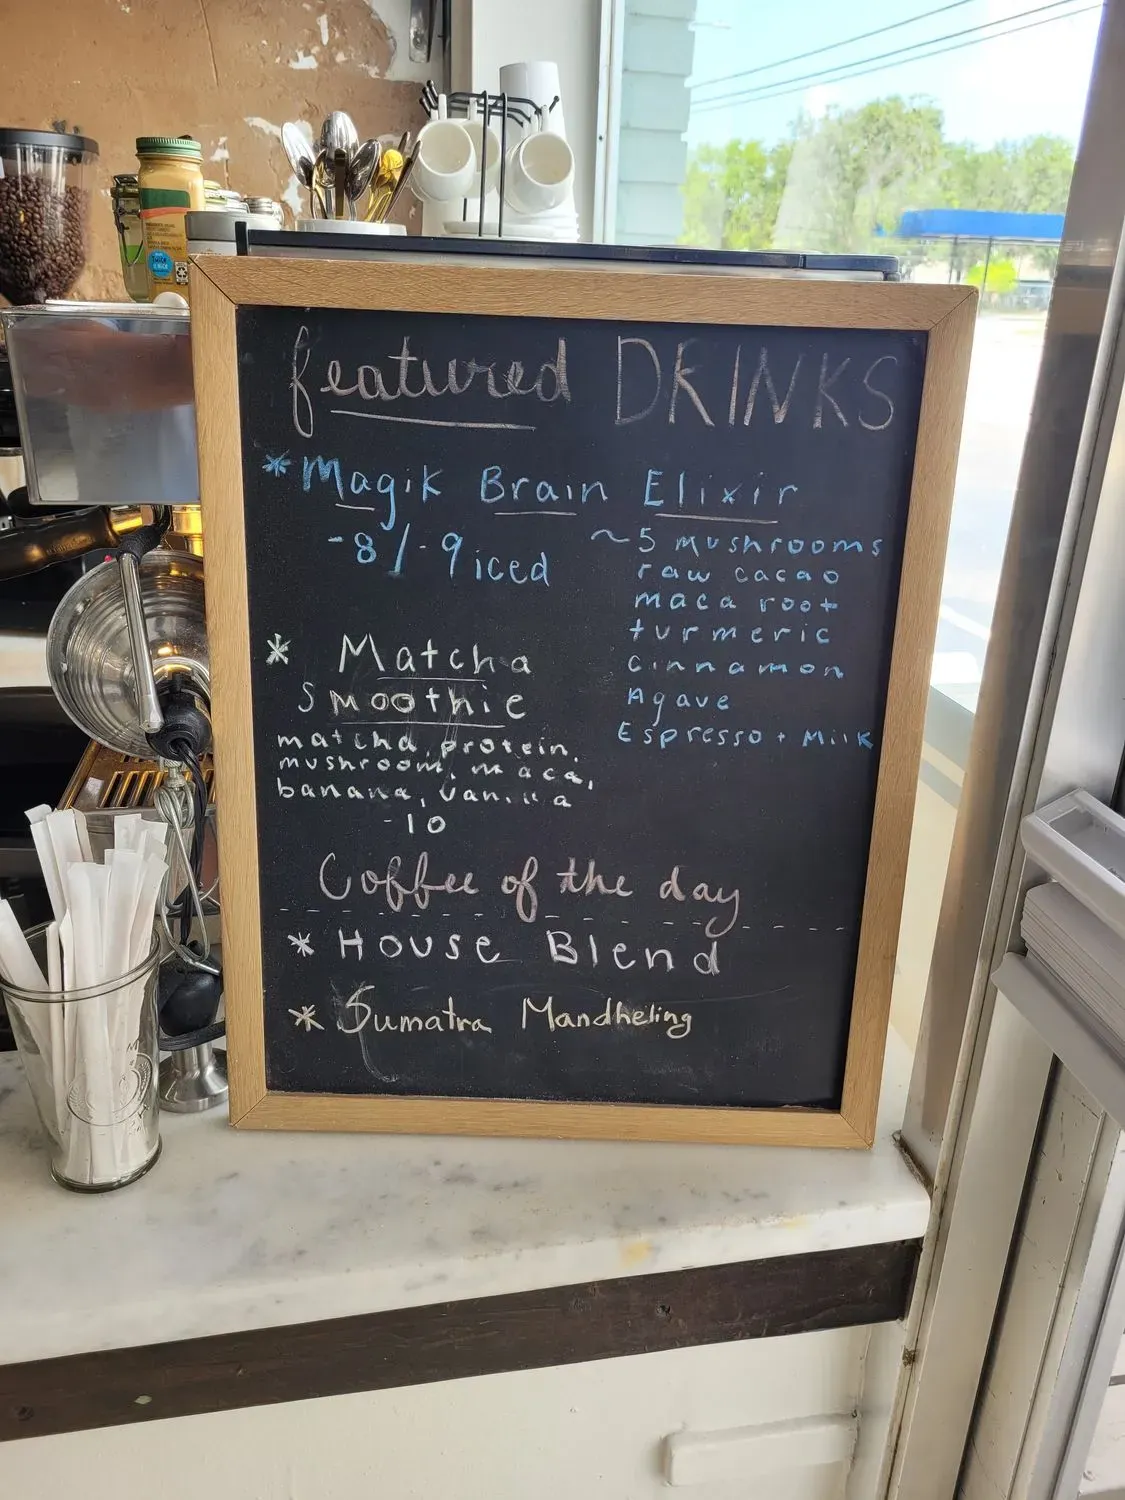 featured DRINKS
* Magik Brain Elixir
-8/-9 iced
~5 mushrooms
raw cacao
maca root
turmeric
cinnamon
Agave
Espresso + Milk
* Matcha
Smoothie
matcha, protein,
mushroom, maca,
banana, vanilla
-10
Coffee of the day
* House Blend
* Sumatra Mandheling